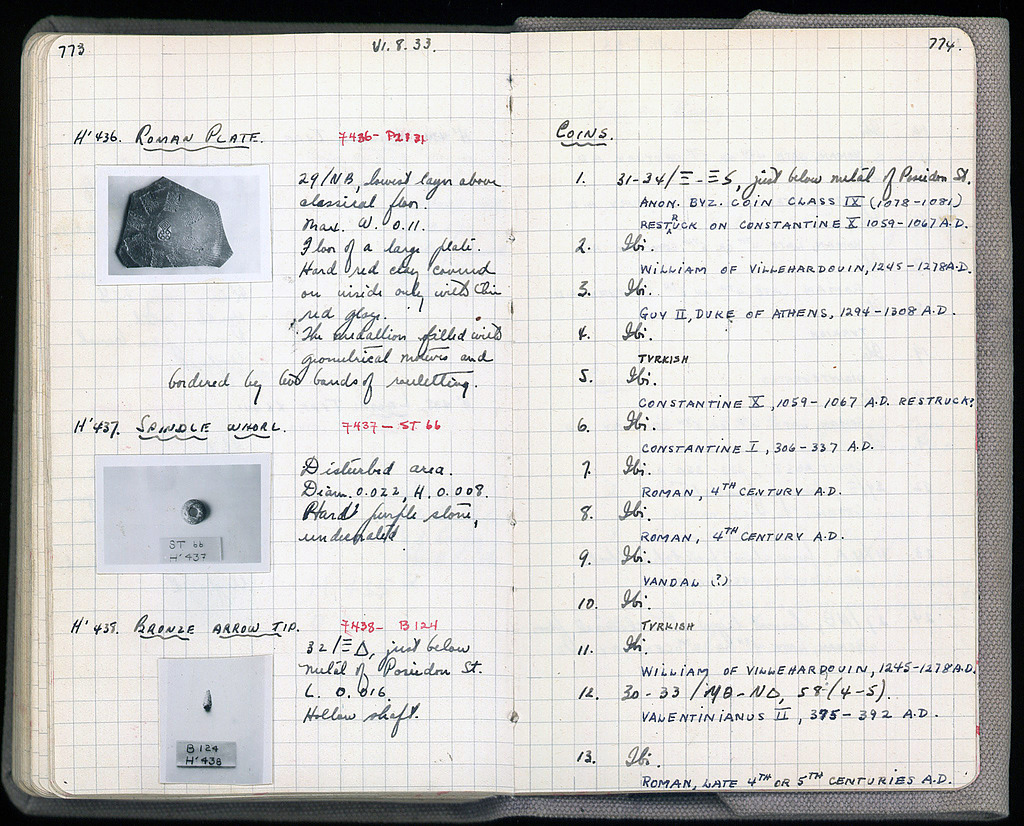 773
VI. 8. 33.
H' 436. ROMAN PLATE.
7436 - P2831
29/NB, lowest layer above
classical floor.
Max. W. 0.11.
Floor of a large plate.
Hard red clay covered
on inside only, with thin
red glaze.
The medallion filled with
geometrical motives and
bordered by two bands of rouletting.
H' 437. SPINDLE WHORL.
7437 - ST 66
Disturbed area.
Diam. 0.022, H. 0.008.
Hard purple stone,
undecorated.
ST 66
H' 437
H' 438. BRONZE ARROW TIP.
7438 - B 124
32/Ξ Δ, just below
metal of Poseidon St.
L. 0.016.
Hollow shaft.
B 124
H' 438
774.
COINS.
1. 31-34/Ξ-ΞS, just below metal of Poseidon St.
ANON. BYZ. COIN CLASS IX (1078-1081)
RESTRUCK ON CONSTANTINE X 1059-1067 A.D.
2. Ibi.
WILLIAM OF VILLEHARDOUIN, 1245-1278 A.D.
3. Ibi.
GUY II, DUKE OF ATHENS, 1294-1308 A.D.
4. Ibi.
TURKISH
5. Ibi.
CONSTANTINE X, 1059-1067 A.D. RESTRUCK?
6. Ibi.
CONSTANTINE I, 306-337 A.D.
7. Ibi.
ROMAN, 4TH CENTURY A.D.
8. Ibi.
ROMAN, 4TH CENTURY A.D.
9. Ibi.
VANDAL (?)
10. Ibi.
TURKISH
11. Ibi.
WILLIAM OF VILLEHARDOUIN, 1245-1278 A.D.
12. 30-33/MB-NΔ, 58 (4-5).
VALENTINIANUS II, 375-392 A.D.
13. Ibi.
ROMAN, LATE 4TH OR 5TH CENTURIES A.D.